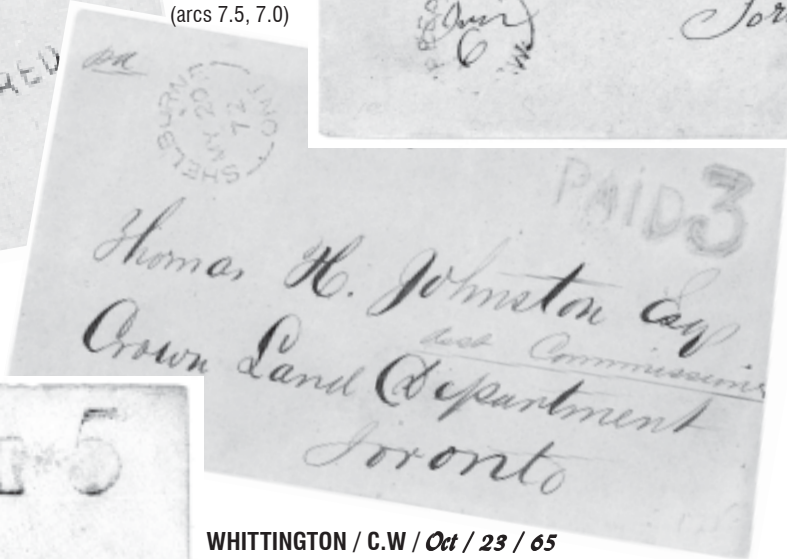 (arcs 7.5, 7.0)
6
pd
SHELBURN
MY 20
ONT
PAID 3
Thomas H. Johnston Esq
Commissioner
Crown Land Department
Toronto
5
WHITTINGTON / C.W / Oct / 23 / 65